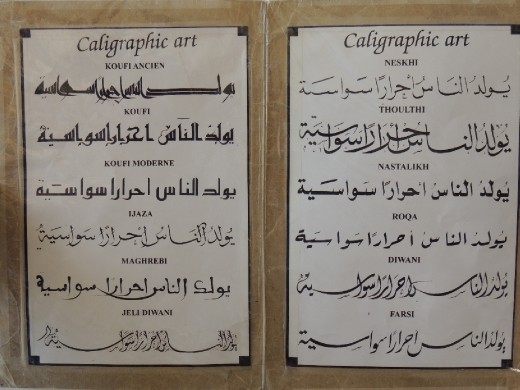 Caligraphic art
KOUFI ANCIEN
يولد الناس احرارا سواسية
KOUFI
يولد الناس احرارا سواسية
KOUFI MODERNE
يولد الناس احرارا سواسية
IJAZA
يُولدُ النَّاسُ أحرارًا سواسيَة
MAGHREBI
يولد الناس احرارا سواسية
JELI DIWANI
يولد الناس احرارا سواسية
Caligraphic art
NESKHI
يُولدُ النَاسُ أحرارًا سواسيَة
THOULTHI
يُولدُ الناس أحرارًا سواسيَّة
NASTALIKH
يُولدُ الناسُ أحرارًا سواسية
ROQA
يُولدُ الناسُ أحرارًا سواسية
DIWANI
يُولدُ الناس احرارًا سواسية
FARSI
يُولدُ الناسُ أحرارًا سواسية